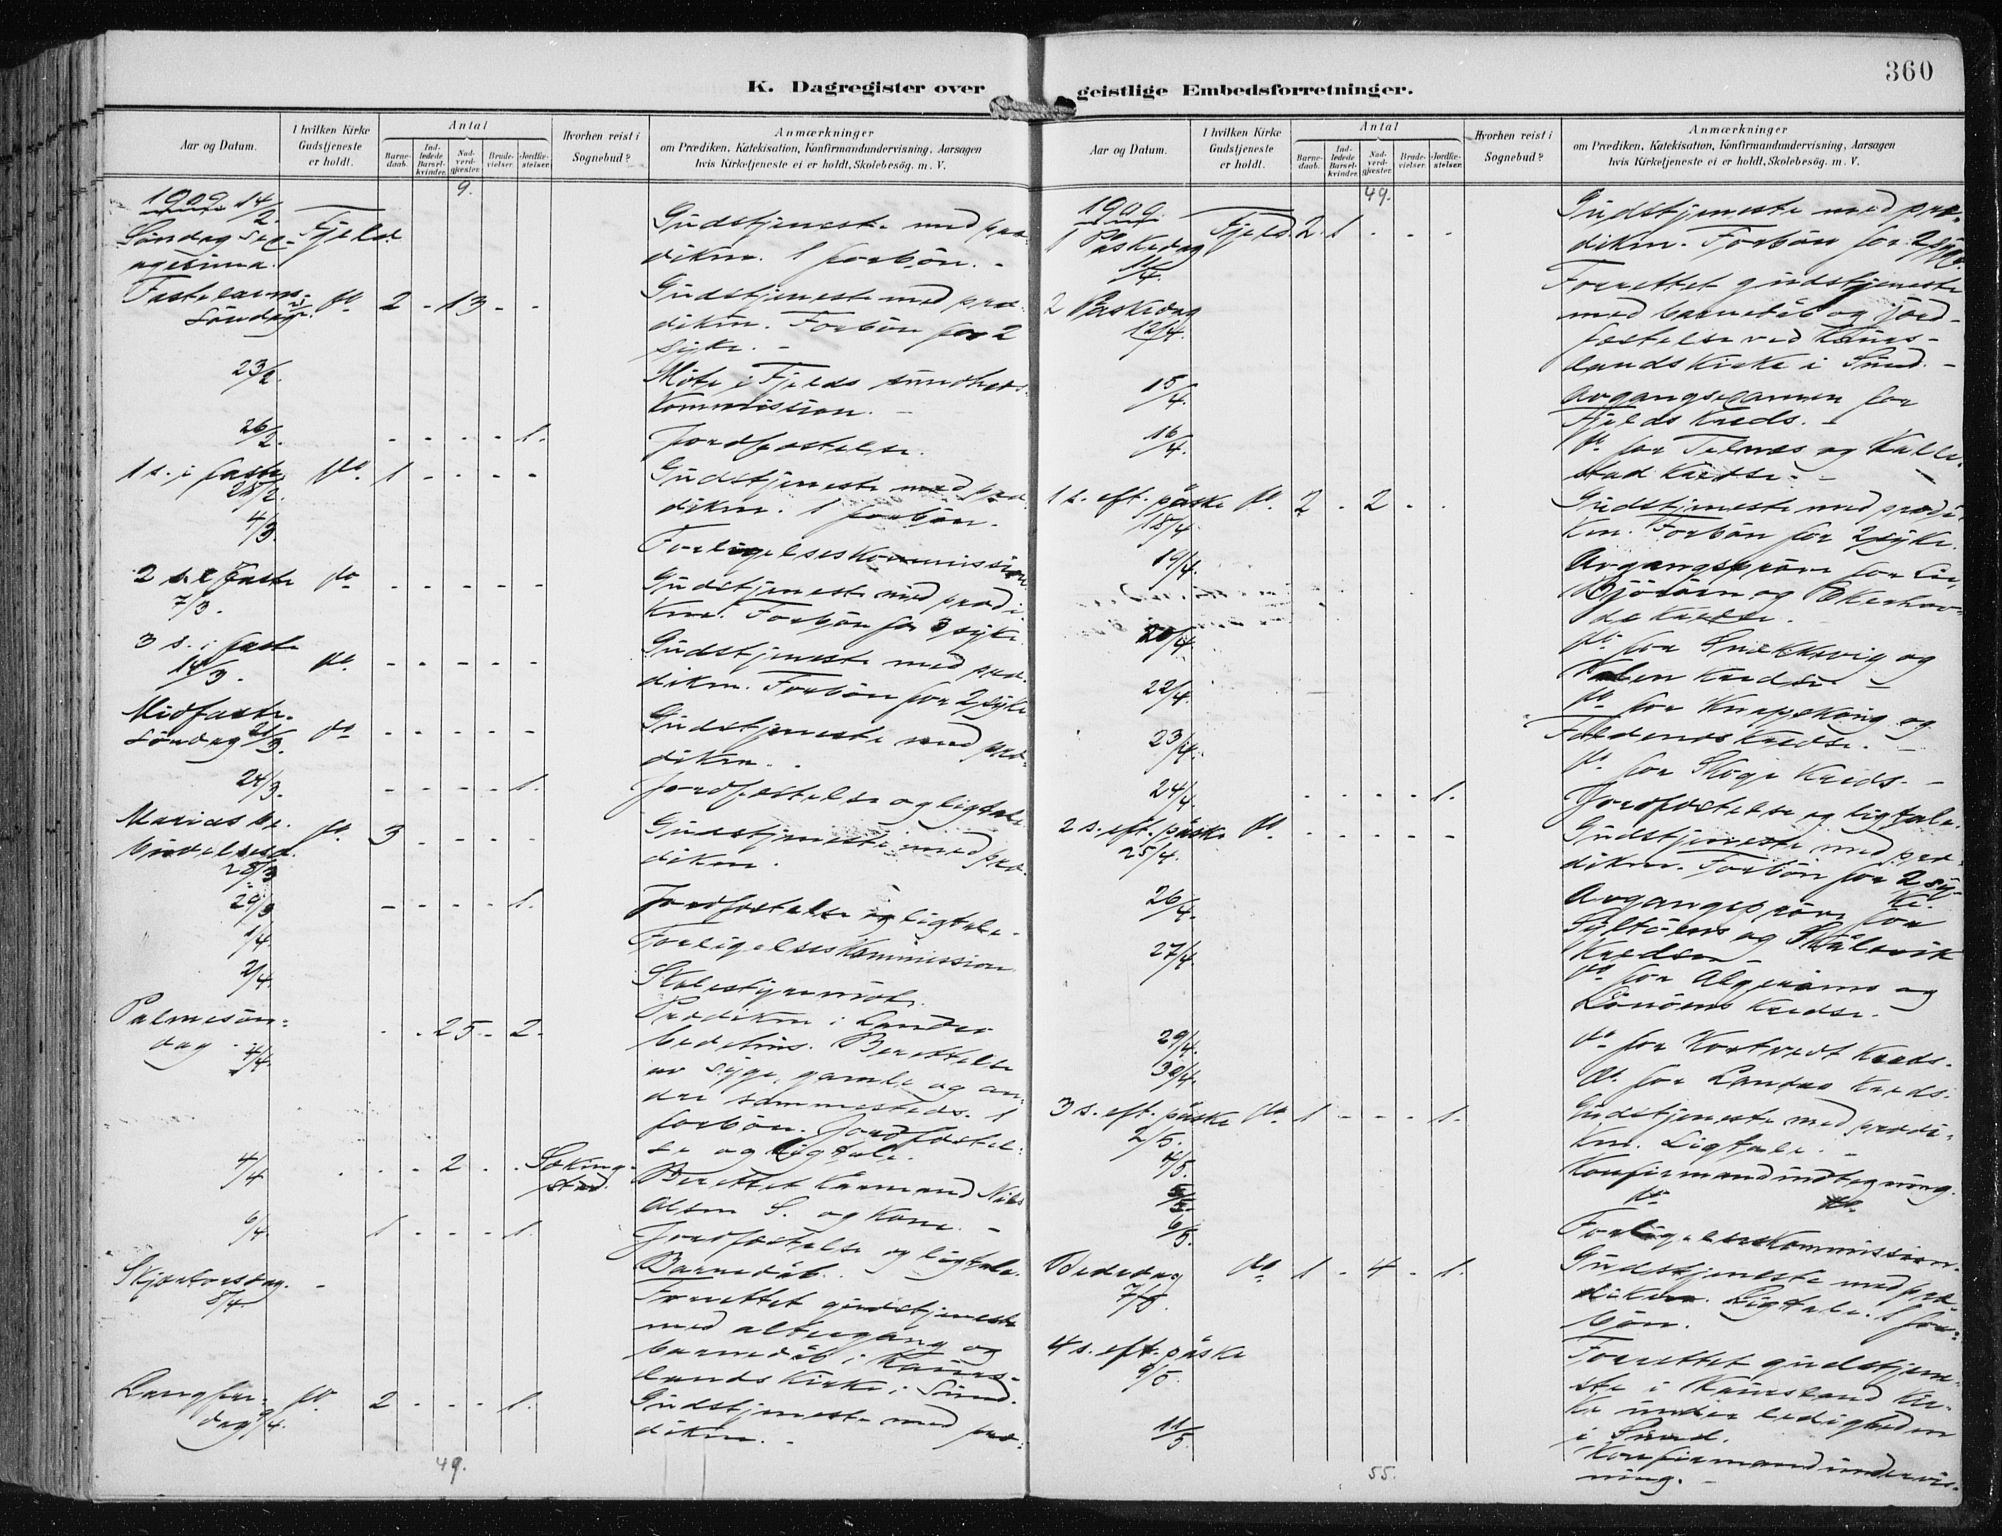 360
K. Dagregister over geistlige Embedsforretninger.
Aar og Datum.
I hvilken Kirke Gudstjeneste er holdt.
Antal
Barnedaab.
Indledede Barselkvinder.
Nadverdgjæster.
Brudevielser.
Jordfæstelser.
Hvorhen reist i Sognebud?
Anmærkninger
om Prædiken, Katekisation, Konfirmandundervisning, Aarsagen
hvis Kirketjeneste ei er holdt, Skolebesög. m. V.
9.
1909 14/2.
Søndag Sex-
agesima. Fjeld. Gudstjeneste med præ-
diken. 1 forbøn. -
Fastelavns-
Søndag do. 2 - 13 - - Gudstjeneste med præ-
diken. Forbøn for 2
syke. -
23/2. Møte i Fjelds sundheds-
kommission. -
26/2. - - - - 1. Jordfæstelse.
1 s. i faste do. 1 - - - - Gudstjeneste med præ-
28/2. diken. 1 forbøn.
4/3 Forligelseskommission
2 s. i faste do - - - - - Gudstjeneste med prædi-
7/3. ken. Forbøn for 3 syke
3 s. i faste
14/3. do. - - - - - Gudstjeneste med præ-
diken. Forbøn for 2 syke
Midfaste-
Søndag 21/3. do - - - - - Gudstjeneste med præ-
diken.
24/3. - - - - 1. Jordfæstelse og ligtale
Mariæ be-
budelsesd. do. 3 - - - - Gudstjeneste med præ-
28/3 diken.
29/3 - - - - 1. Jordfæstelse og ligtale.
1/4. Forligelseskommission
2/4. Skolestyremøte.
Palmesøn-
dag - - 25 - 2. Prædiken i Landro
4/4. bedehus. Berettelse
av syge, gamle og an-
dre sammesteds. 1
forbøn. Jordfæstel-
se og ligtale.
4/4 - - - 2 - - Berettet kaarmand Nils
Olsen S. og kone. -
6/4 1 - - - 1. Jordfæstelse og ligtale.
Barnedåb.
Skjærtorsdag. -
8/4 Forrettet gudstjeneste
med altergang og
barnedåb i Kaurs-
lands kirke i Sund.
Langfre-
dag 9/4. do 2 - - - 1. Gudstjeneste med præ-
diken. -
49.
Aar og Datum.
I hvilken Kirke Gudstjeneste er holdt.
Antal
Barnedaab.
Indledede Barselkvinder.
Nadverdgjæster.
Brudevielser.
Jordfæstelser.
Hvorhen reist i Sognebud?
Anmærkninger
om Prædiken, Katekisation, Konfirmandundervisning, Aarsagen
hvis Kirketjeneste ei er holdt, Skolebesög. m. V.
49.
1909.
1 Påskedag Fjeld. 2. 1 - - - Gudstjeneste med præ-
11/4 diken. Forbøn for 2 syge.
2 Påskedag Forrettet gudstjeneste
12/4. med barnedåb og jord-
fæstelse ved Kaurs-
lands kirke i Sund. -
15/4. Avgangsexamen for
Fjelds kreds. -
16/4. do. for Telnæs og Kalle-
stad kredse. -
1 s. eft. påske do. 2 - 2 - - Gudstjeneste med prædi-
18/4. ken. Forbøn for 2 syke.
19/4. Avgangsprøve for Lie,
Bjørøen og Ekerhov-
de kredse.
20/4. do. for Snekkevig og
kredse. -
22/4. do. for Knappskog og
Foldenes kredse. -
23/4. do. for Skoge kreds. -
24/4. - - - - 1. Jordfæstelse og ligtale.
2 s. eft. påske do. - - - - - Gudstjeneste med præ-
25/4. diken. Forbøn for 2 sy-
ke.
26/4. Avgangsprøve for
Syltøens og Skålevik
kredse
27/4 do. for Algerøens og
Lønøens kredse.
29/4. do for Kortvedt kreds.
30/4. do. for Landro kreds.
3 s. eft. påske do. 1 - - - 1. Gudstjeneste med prædi-
2/5. ken. Ligtale. -
4/5. Konfirmandindtegning.
5/5 do. do.
6/5. Forligelseskommission.
Bededag do. 1 - 4 - 1. Gudstjeneste med præ-
7/5. diken. Ligtale. 1 for-
bøn.
4 s. eft. påske
9/5. Forrettet gudstjene-
ste i Kaursland kir-
ke under ledigheden
i Sund.
11/5. Konfirmandundervis-
ning. -
55.